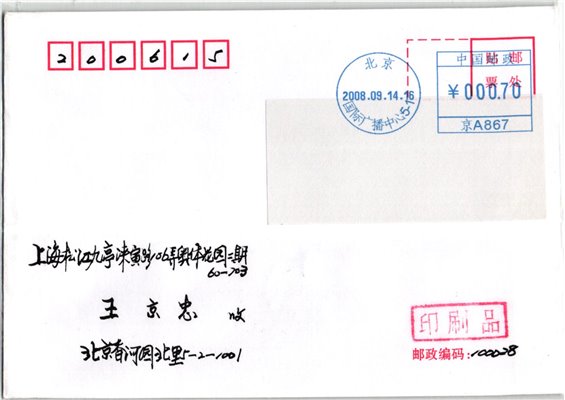 200615
贴邮
票处
北京
2008.09.14.16
(国际广播中心)5-1
中国邮政
¥000.70
京A867
上海松江九亭涞寅路 弄奥体花园二期
60-703
王京忠 收
北京香河园北里5-2-1001
印刷品
邮政编码:100028